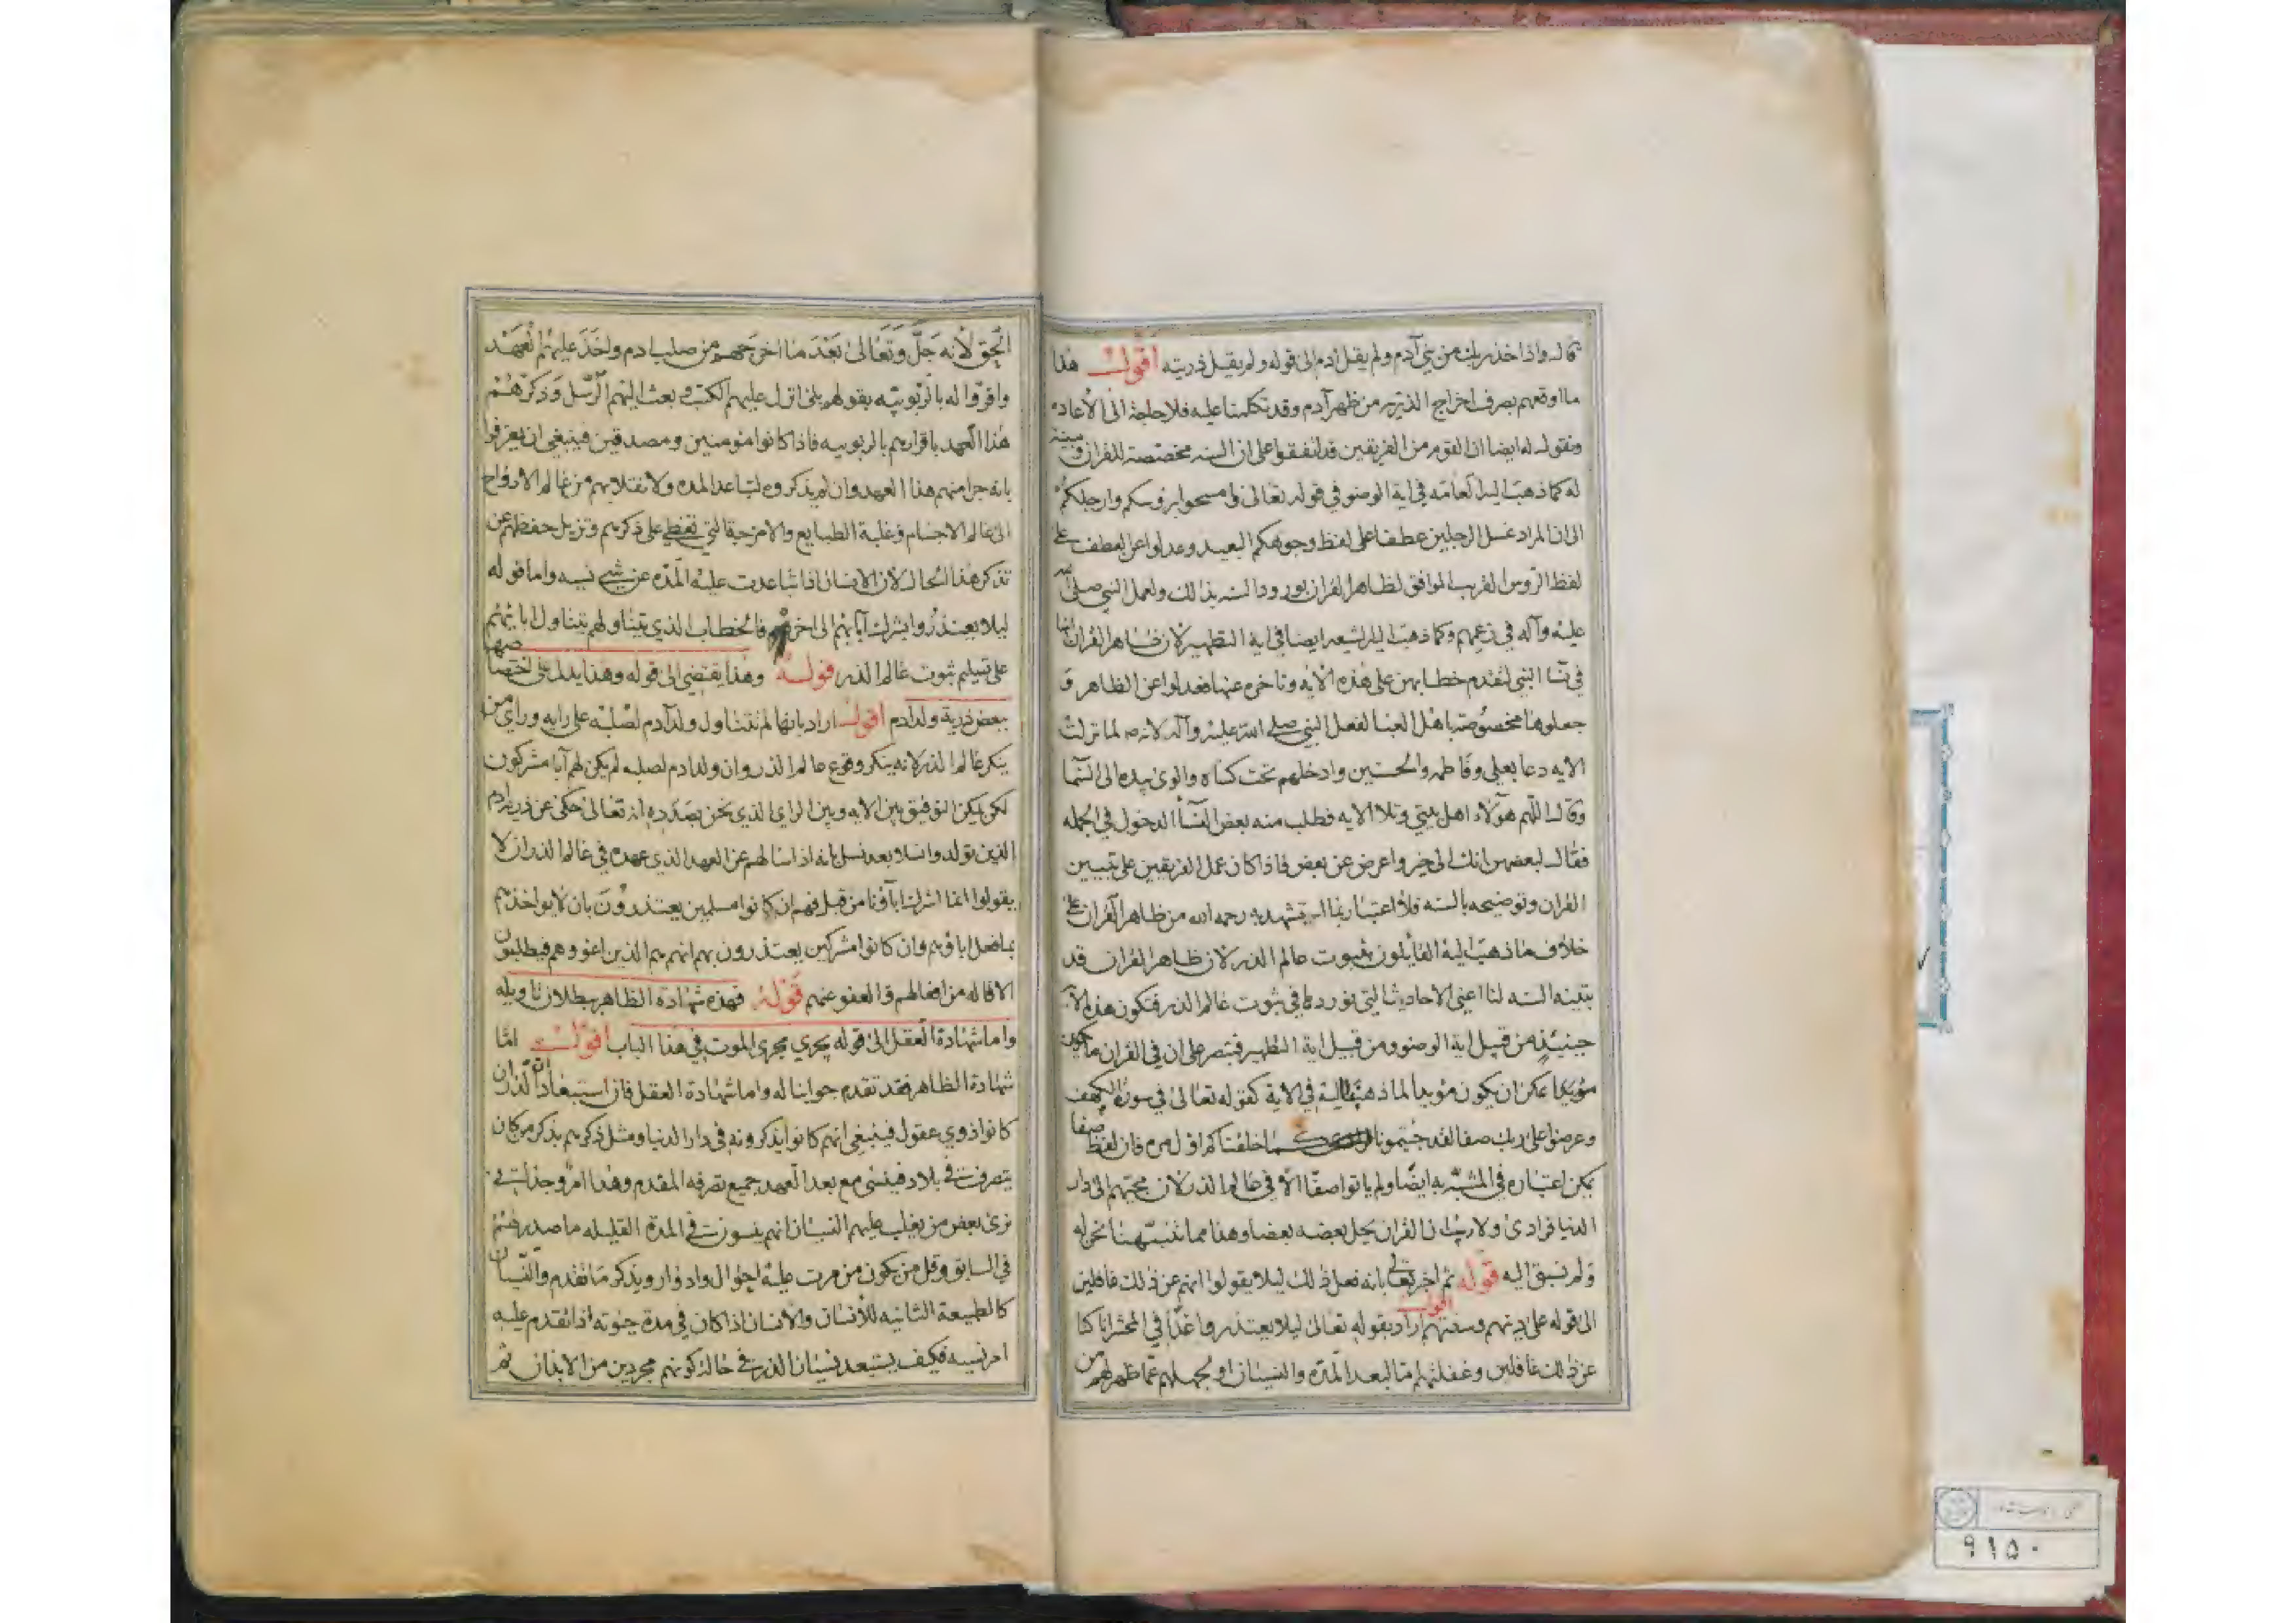 قال واذ اخذ ربك من بني آدم ولم يقل آدم الى قوله ولم يقل ذريته اقول هذا
ما اوقعهم بصرف اخراج الذر من ظهر آدم وقد تكلمنا عليه فلا حاجة الى الاعاده
ونقول له ايضا ان القوم من الفريقين قد اتفقوا على ان السنه مخصصة للقران ومبينة
له كما ذهب اليه العامه في اية الوضو في قوله تعالى وامسحوا بروسكم وارجلكم
الى ان المراد غسل الرجلين عطفا على لفظ وجوهكم البعيد وعدلوا عن العطف على
لفظ الروس القريب الموافق لظاهر القران لورود السنه بذلك ولعمل النبي صلى الله
عليه وآله في زعمهم وكما ذهب اليه الشيعه ايضا في اية التطهير لان ظاهر القران انها
في نسا النبي لتقدم خطابهن على هذه الايه وتاخره عنها فعدلوا عن الظاهر و
جعلوها مخصوصة باهل العبا لفعل النبي صلى الله عليه وآله لانه ص لما نزلت
الايه دعا بعلي وفاطمه والحسنين وادخلهم تحت كساه والوى بيده الى السما
وقال اللهم هؤلاء اهل بيتي وتلا الايه فطلب منه بعض النسا الدخول في الجمله
فقال لبعضهن انك الى خير واعرض عن بعض فاذا كان عمل الفريقين على تبيين
القران وتوضيحه بالسنه فلا اعتبار بما استشهد به رحمه الله من ظاهر القران على
خلاف ما ذهب اليه القايلون بثبوت عالم الذر لان ظاهر القران قد
بينه السنه لنا اعني الاحاديث التي نوردها في ثبوت عالم الذر فتكون هذه الاية
حينئذ من قبيل اية الوضو ومن قبيل اية التطهير فتبصر على ان في القران ما يكون
مؤيدا يمكن ان يكون مؤيدا لما ذهبنا اليه في الاية كقوله تعالى في سورة الكهف
وعرضوا على ربك صفا لقد جئتمونا كما خلقناكم اول مره فان لفظ صفا
يمكن اعتباره في المشبه به ايضا ولم ياتوا صفا الا في عالم الذر لان مجيئهم الى دار
الدنيا فرادى ولا ريب ان القران يحل بعضه بعضا وهذا مما تنبهنا نحن له
ولم نسبق اليه قوله ثم اخبر تعالى بانه فعل ذلك ليلا يقولوا انهم عن ذلك غافلين
الى قوله على دينهم وسنتهم اقول اراد بقوله تعالى ليلا يعتذروا غدا في المحشر انا كنا
عن ذلك غافلين وغفلتهم اما لبعد المده والنسيان او لجهلهم عما ظهر لهم من
الحق لانه جل وتعالى بعد ما اخرجهم من صلب ادم واخذ عليهم العهد
واقروا له بالربوبيه بقولهم بلى انزل عليهم الكتب وبعث اليهم الرسل وذكرهم
هذا العهد باقرارهم بالربوبيه فاذا كانوا مومنين ومصدقين فينبغي ان يعترفوا
بانه جرا منهم هذا العهد وان لم يذكروه لتباعد المده ولانتقلابهم من عالم الارواح
الى عالم الاجسام وغلبة الطبايع والامزجة التي تغطي على ذكرهم وتزيل حفظهم عن
تذكر هذا الحال لان الانسان اذا تباعدت عليه المده عن شي نسيه واما قوله
ليلا يعتذروا بشرك آبائهم الى اخره فالخطاب الذي يتناولهم يتناول ابائهم
على تسليم ثبوت عالم الذر قوله وهذا يقتضي الى قوله وهذا يدل على اختصاصها
ببعض ذرية ولد ادم اقول اراد بانها لم تتناول ولد آدم لصلبه على رايه وراي من
ينكر عالم الذر لانه ينكر وقوع عالم الذر وان ولد ادم لصلبه لم يكن لهم آبا مشركون
لكن يمكن التوفيق بين الايه وبين الراي الذي نحن بصدده انه تعالى حكى عن ذرية ادم
الذين تولدوا نسلا بعد نسل بانه اذا سالهم عن العهد الذي عهده في عالم الذر ان لا
يقولوا انما اشرك ابآؤنا من قبل فهم ان كانوا مسلمين يعتذرون بان لا يواخذهم
بما فعل اباؤهم وان كانوا مشركين يعتذرون بهم انهم هم الذين اغووهم فيطلبون
الاقاله من افعالهم والعفو عنهم قوله فهذه شهادة الظاهر ببطلان تاويله
واما شهادة العقل الى قوله يجري مجرى الموت في هذا الباب اقول اما
شهادة الظاهر فقد تقدم جوابنا له واما شهادة العقل فان استبعاد ان الذر ان
كانوا ذوي عقول فينبغي انهم كانوا يذكرونه في دار الدنيا ومثل ذكرهم بذكر من كان
يتصرف في بلاد فينسى مع بعد العهد جميع تصرفه المقدم وهذا امر وجداني
نرى بعض من يغلب عليهم النسيان انهم ينسون في المدة القليله ما صدر عنهم
في السابق وقل من يكون من مرت عليه احوال وادوار ويذكر ما تقدم والنسيان
كالطبيعة الثانيه للانسان والانسان اذا كان في مدة حيوته اذا تقدم عليه
امر نسيه فكيف يستبعد نسيان الذر في حال كونهم مجردين من الابدان ثم
٩١٥٠